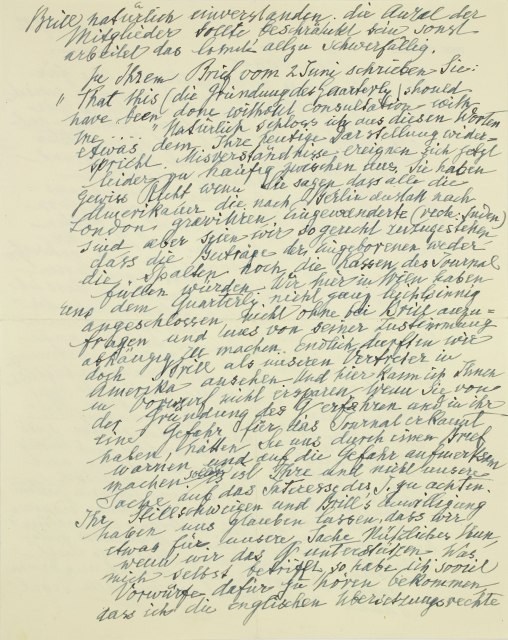 Brill natürlich einverstanden. die Anzal der
Mitglieder sollte beschränkt sein sonst
arbeitet das Comite allzu schwerfällig.
In Ihrem Brief vom 2 Juni schrieben Sie:
"That this (die Gründung des Quarterly) should
have been done without consultation with
me .... " Natürlich schloss ich aus diesen Worten
etwas dem Ihre heutige Darstellung wider-
spricht. Missverständnisse ereignen sich jetzt
leider zu häufig zwischen uns. Sie haben
gewiss Recht wenn Sie sagen dass alle die
Amerikaner die nach Berlin anstatt nach
London gravitiren. Eingewanderte (rech: Juden)
sind aber seien wir so gerecht zuzugestehen
dass die Beiträge der eingeborenen weder
die Spalten noch die Kassen des Journal
füllen würden. Wir hier in Wien haben
uns dem Quarterly nicht ganz leichtsinnig
angeschlossen, nicht ohne bei Brill anzu=
fragen und uns von seiner Zustimmung
abhängig zu machen. Endlich durften wir
doch Brill als unseren Vertreter in
Amerika ansehen Und hier kann ich Ihnen
den Vorwurf nicht ersparen. Wenn Sie von
der Gründung des Q erfahren und in ihr
eine Gefahr für das Journal erkannt
haben, hätten Sie uns durch einen Brief
warnen und auf die Gefahr aufmerksam
machen sollen es ist Ihre und nicht unsere
Sache auf das Interesse des J. zu achten.
Ihr Stillschweigen und Brill's Einwilligung
haben uns glauben lassen, dass wir
etwas für unsere Sache Nützliches thun,
wenn wir das Q unterstützen. Was
mich selbst betrifft, so habe ich soviel
Vorwürfe dafür zu hören bekommen
dass ich die englischen Übersetzungsrechte